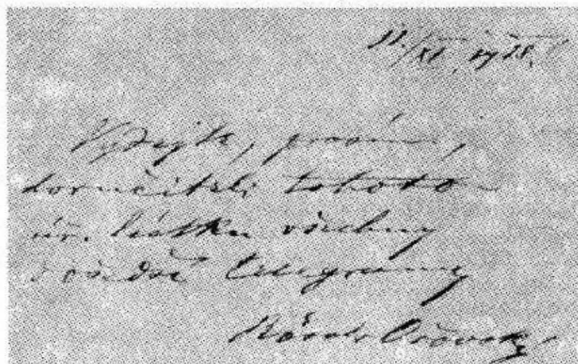 11./XI. 1918.
Vydejte, prosím,
doručiteli tohoto
úř. lístku všechny
telegramy